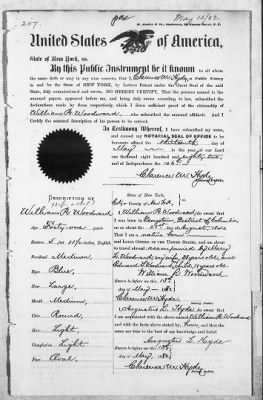 May 15/82
217.
United States of America,
State of New York, ss.
By this Public Instrument be it known to all whom
the same doth or may in any wise concern, that I Clarence W. Hyde, a Public Notary
in and for the State of NEW YORK, by Letters Patent under the Great Seal of the said
State, duly commissioned and sworn, DO HEREBY CERTIFY, That the person named in the
annexed papers, appeared before me, and being duly sworn according to law, subscribed the
declarations made by them respectively, which I deem sufficient proof of the citizenship of
William R. Woodward, who signed the annexed affidavit. And I
Certify the annexed description of his person to be correct.
In Testimony Whereof, I have subscribed my name,
and caused my NOTARIAL SEAL OF OFFICE to be
hereunto affixed the
May in the year of our Lord
one thousand eight hundred and eighty two,
and of Independence of the
Clarence W. Hyde
DESCRIPTION OF
William R. Woodward
Age Forty-one years
Stature 5 ft. inches, English
Forehead Medium
Eyes Blue,
Nose Large,
Mouth Medium,
Chin Round,
Hair Light
Complexion Light
Face Oval
State of New York,
City & County of New York, ss.
I William R. Woodward do swear that
I was born in Georgetown, District of Columbia
on the day of August
that I am a
and LOYAL CITIZEN of the UNITED STATES, and am about
to travel abroad accompanied by
William R. Woodward
Sworn to before me this 15th
day of May 188
Clarence W. Hyde
Notary Public.
I, Augustus L. Hyde do swear that I
am acquainted with the above named William R. Woodward
and with the facts above stated by him, and that
the same are true to the best of my knowledge and belief
Augustus L. Hyde
Sworn to before me this 15th
day of May, 188
Clarence W. Hyde